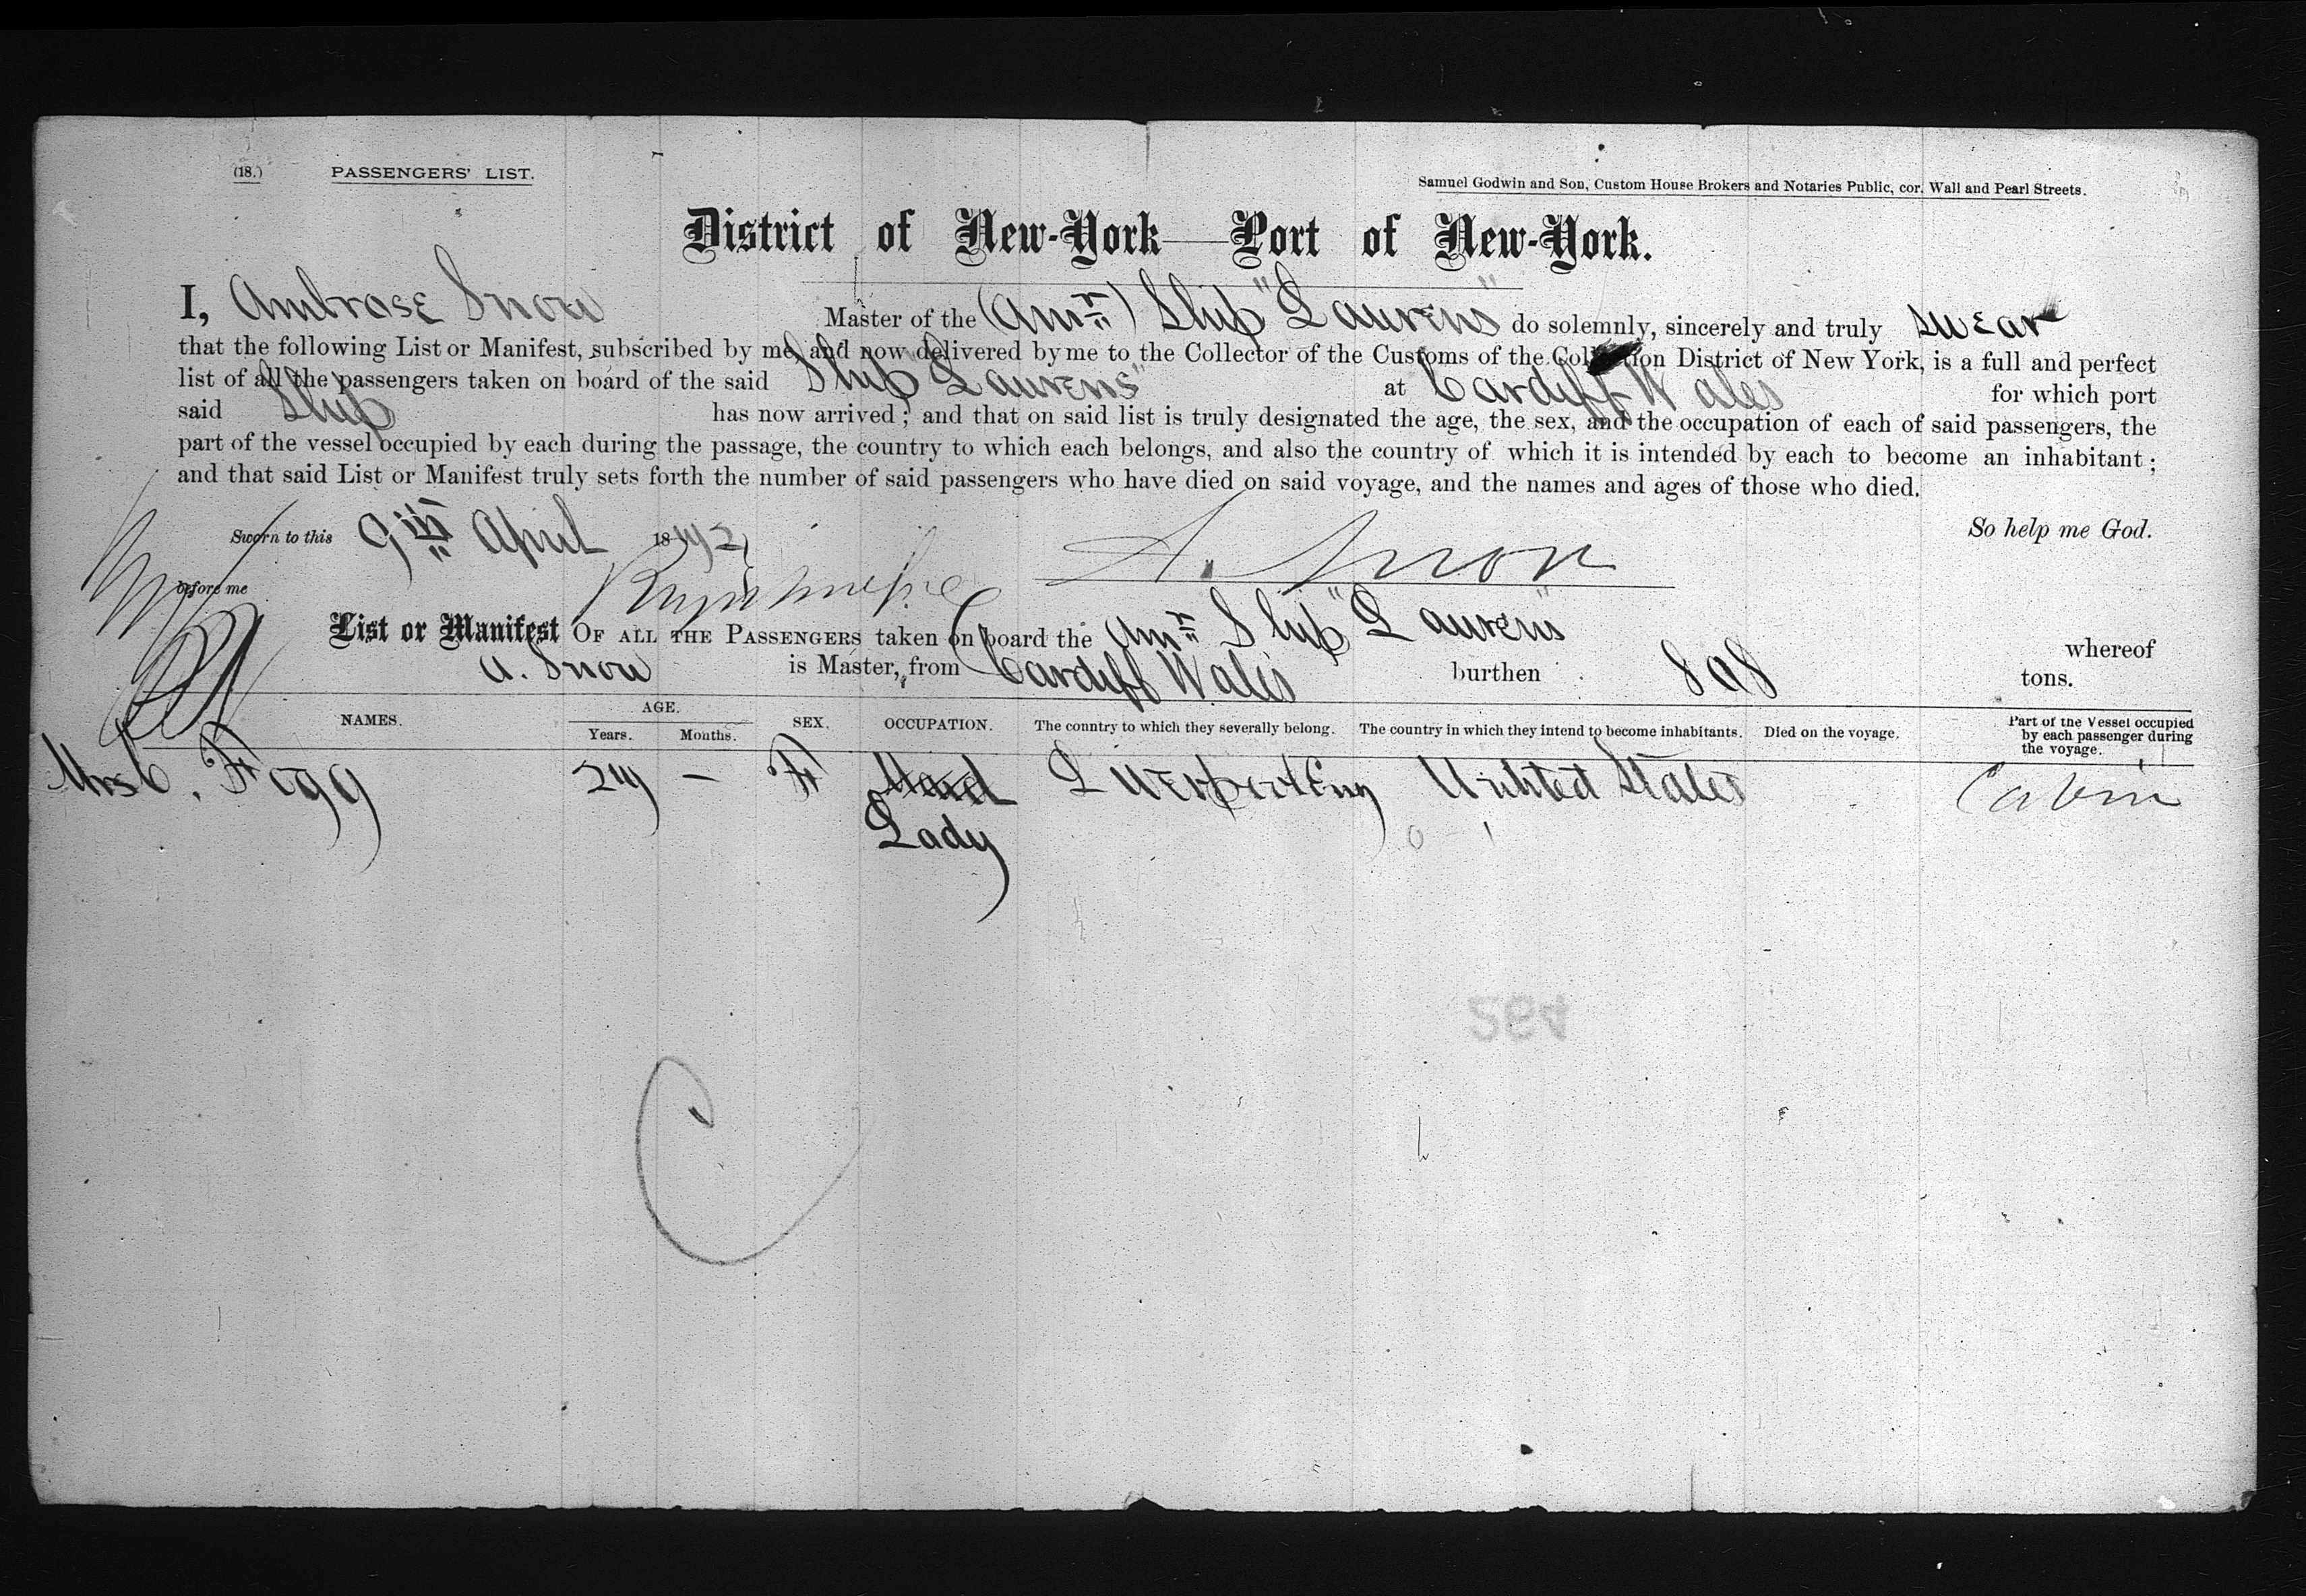 (18.) PASSENGERS' LIST.
Samuel Godwin and Son, Custom House Brokers and Notaries Public, cor. Wall and Pearl Streets.
District of New-York—Port of New-York.
I, Ambrose Snow Master of the (Amn) Ship "Laurens" do solemnly, sincerely and truly swear
that the following List or Manifest, subscribed by me, and now delivered by me to the Collector of the Customs of the Collection District of New York, is a full and perfect
list of all the passengers taken on board of the said Ship "Laurens" at Cardiff Wales for which port
said Ship has now arrived; and that on said list is truly designated the age, the sex, and the occupation of each of said passengers, the
part of the vessel occupied by each during the passage, the country to which each belongs, and also the country of which it is intended by each to become an inhabitant;
and that said List or Manifest truly sets forth the number of said passengers who have died on said voyage, and the names and ages of those who died.
So help me God.
Sworn to this 9th April 18
A. Snow
before me
List or Manifest OF ALL THE PASSENGERS taken on board the Amn Ship "Laurens" whereof
A. Snow is Master, from Cardiff Wales burthen 898 tons.
NAMES. AGE. Years. Months. SEX. OCCUPATION. The country to which they severally belong. The country in which they intend to become inhabitants. Died on the voyage. Part of the Vessel occupied by each passenger during the voyage.
Mrs C. Fogg 29 — F Maid Liverpool Eng United States Cabin
Lady
264
C